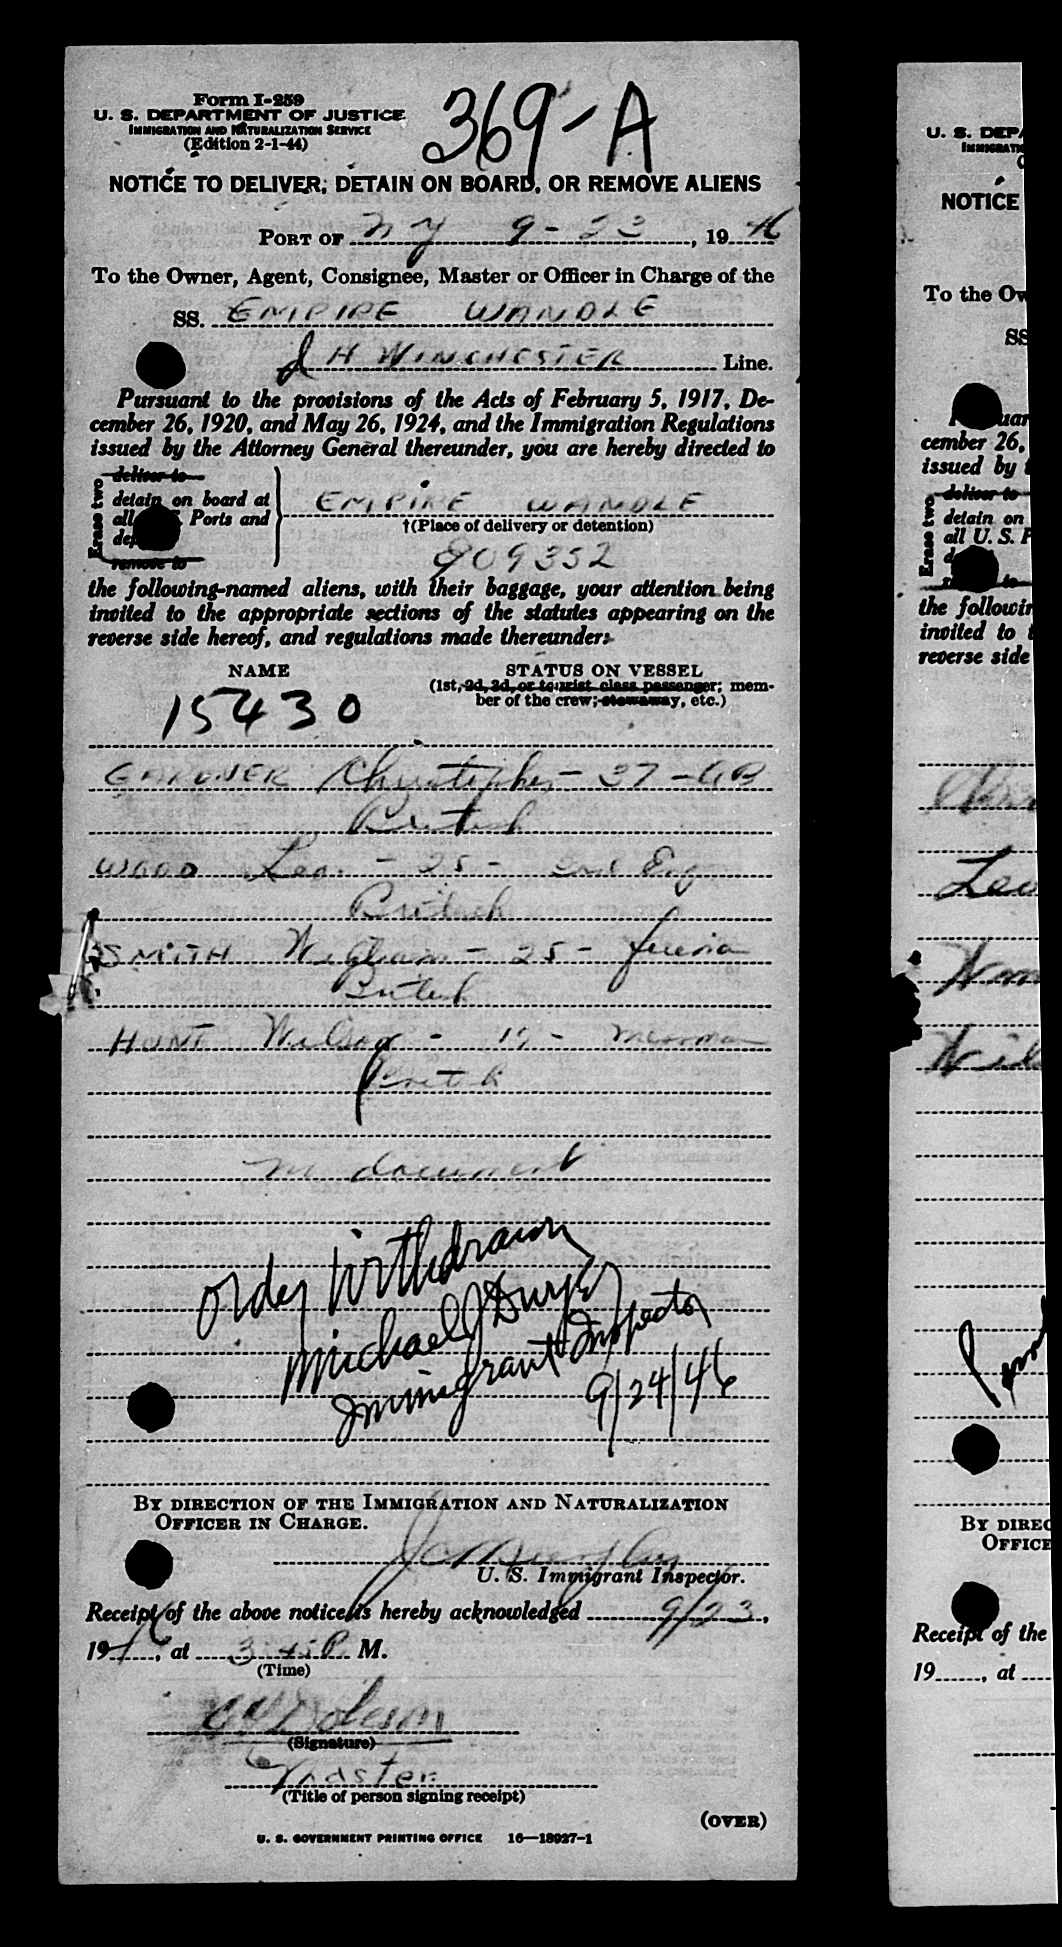 Form I-259
U. S. DEPARTMENT OF JUSTICE
IMMIGRATION AND NATURALIZATION SERVICE
(Edition 2-1-44)
369-A
NOTICE TO DELIVER, DETAIN ON BOARD, OR REMOVE ALIENS
PORT OF NY 9-23, 1946
To the Owner, Agent, Consignee, Master or Officer in Charge of the
SS. EMPIRE WANDLE
J H WINCHESTER Line.
Pursuant to the provisions of the Acts of February 5, 1917, De-
cember 26, 1920, and May 26, 1924, and the Immigration Regulations
issued by the Attorney General thereunder, you are hereby directed to
Erase two
deliver to
detain on board at
all Ports and
remove to
EMPIRE WANDLE
†(Place of delivery or detention)
809352
the following-named aliens, with their baggage, your attention being
invited to the appropriate sections of the statutes appearing on the
reverse side hereof, and regulations made thereunder:
NAME
STATUS ON VESSEL
(1st, 2d, 3d, or tourist class passenger; mem-
ber of the crew; stowaway, etc.)
15430
GARDNER Christopher - 37 - AB
British
WOOD Leo. - 25 - 2nd Eng
British
SMITH William - 25 -
British
HUNT Wilson - - Messman
British
document
order Withdrawn
Michael J Dwyer
Immigrant Inspector
9/24/46
BY DIRECTION OF THE IMMIGRATION AND NATURALIZATION
OFFICER IN CHARGE.
U. S. Immigrant Inspector.
Receipt of the above notice is hereby acknowledged 9/23,
1946, at 3:45 P. M.
(Time)
(Signature)
Master
(Title of person signing receipt)
(OVER)
U. S. GOVERNMENT PRINTING OFFICE 16—18927-1
U. S. DEPA
NOTICE
To the Ow
SS
cember 26,
issued by
Erase two
deliver to
detain on
all U. S. P
the followin
invited to
reverse side
Leo
Wm
Wil
BY DIREC
OFFICE
Receipt of the
19, at